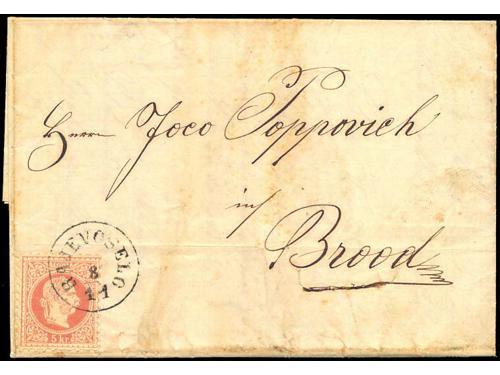 Herrn Joco Poppovich
in
Brood
BABJEVOSELO
8
11
5 kr